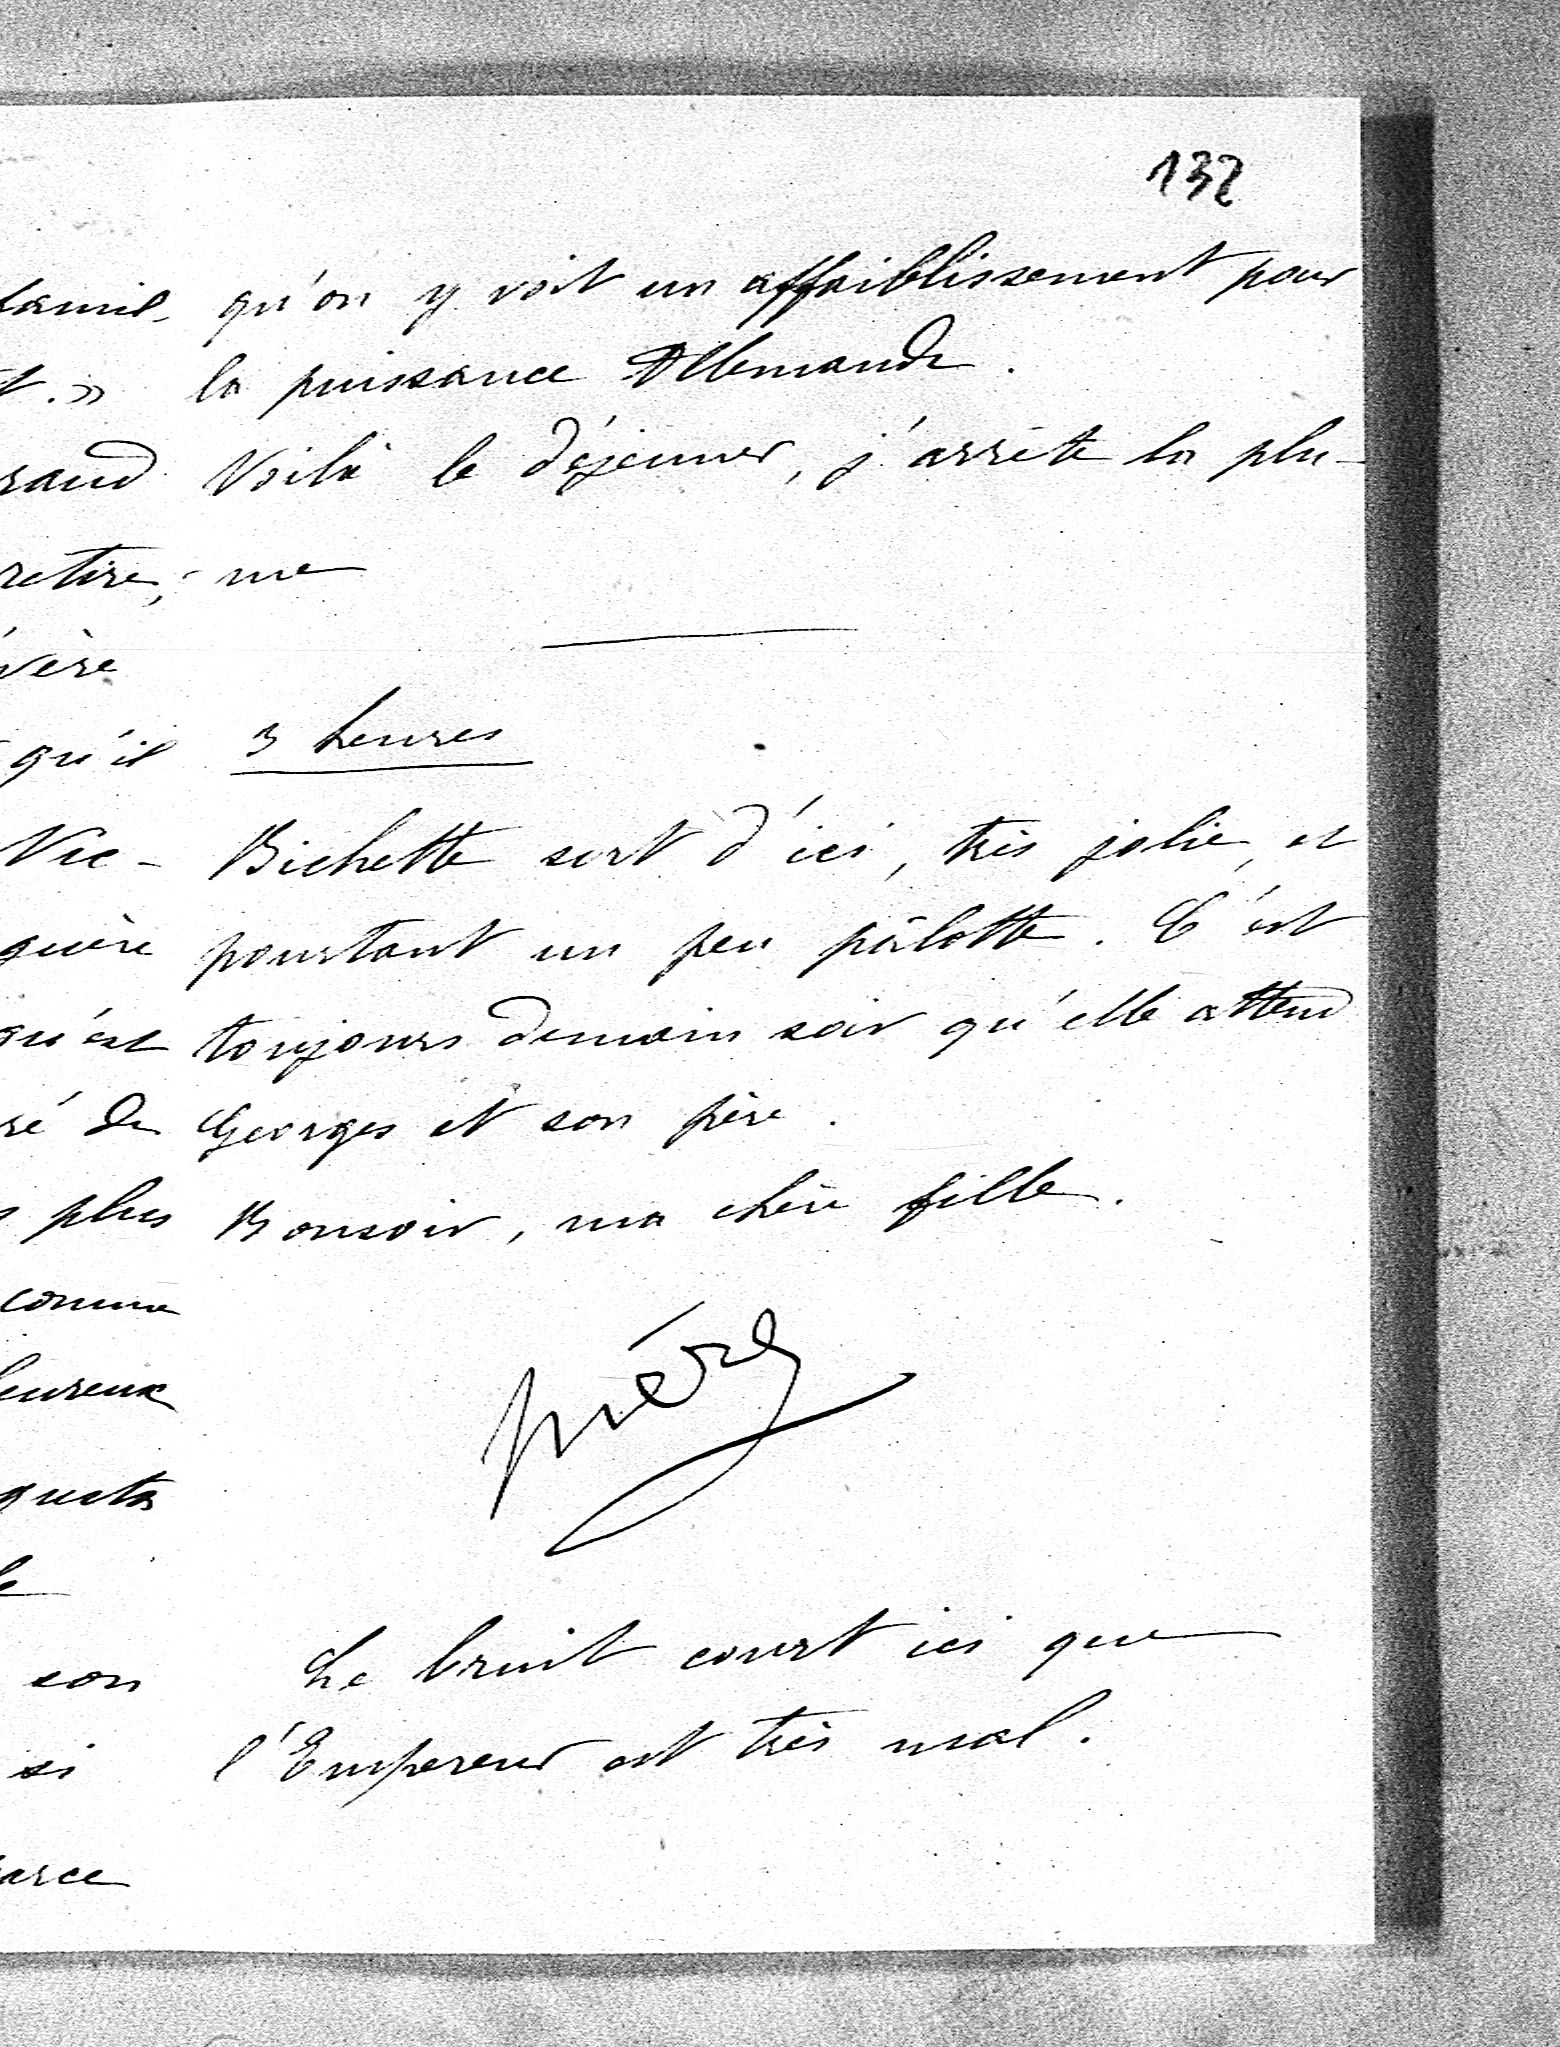 132
qu'on y voit un affaiblissement pour
la puissance Allemande.
Voilà le déjeuner, j'arrête la plu-
me
3 heures
Bichette sort d'ici, très jolie, et
pourtant un peu pâlotte. C'est
toujours demain soir qu'elle attend
Georges et son père.
Bonsoir, ma chère fille.
mère
Le bruit court ici que
l'Empereur est très mal.
famil-
t.»
rand
retire,
vère
qu'il
Vic-
guère
qu'est
ré de
s plus
comme
heureux
gusta
le
son
si
arce